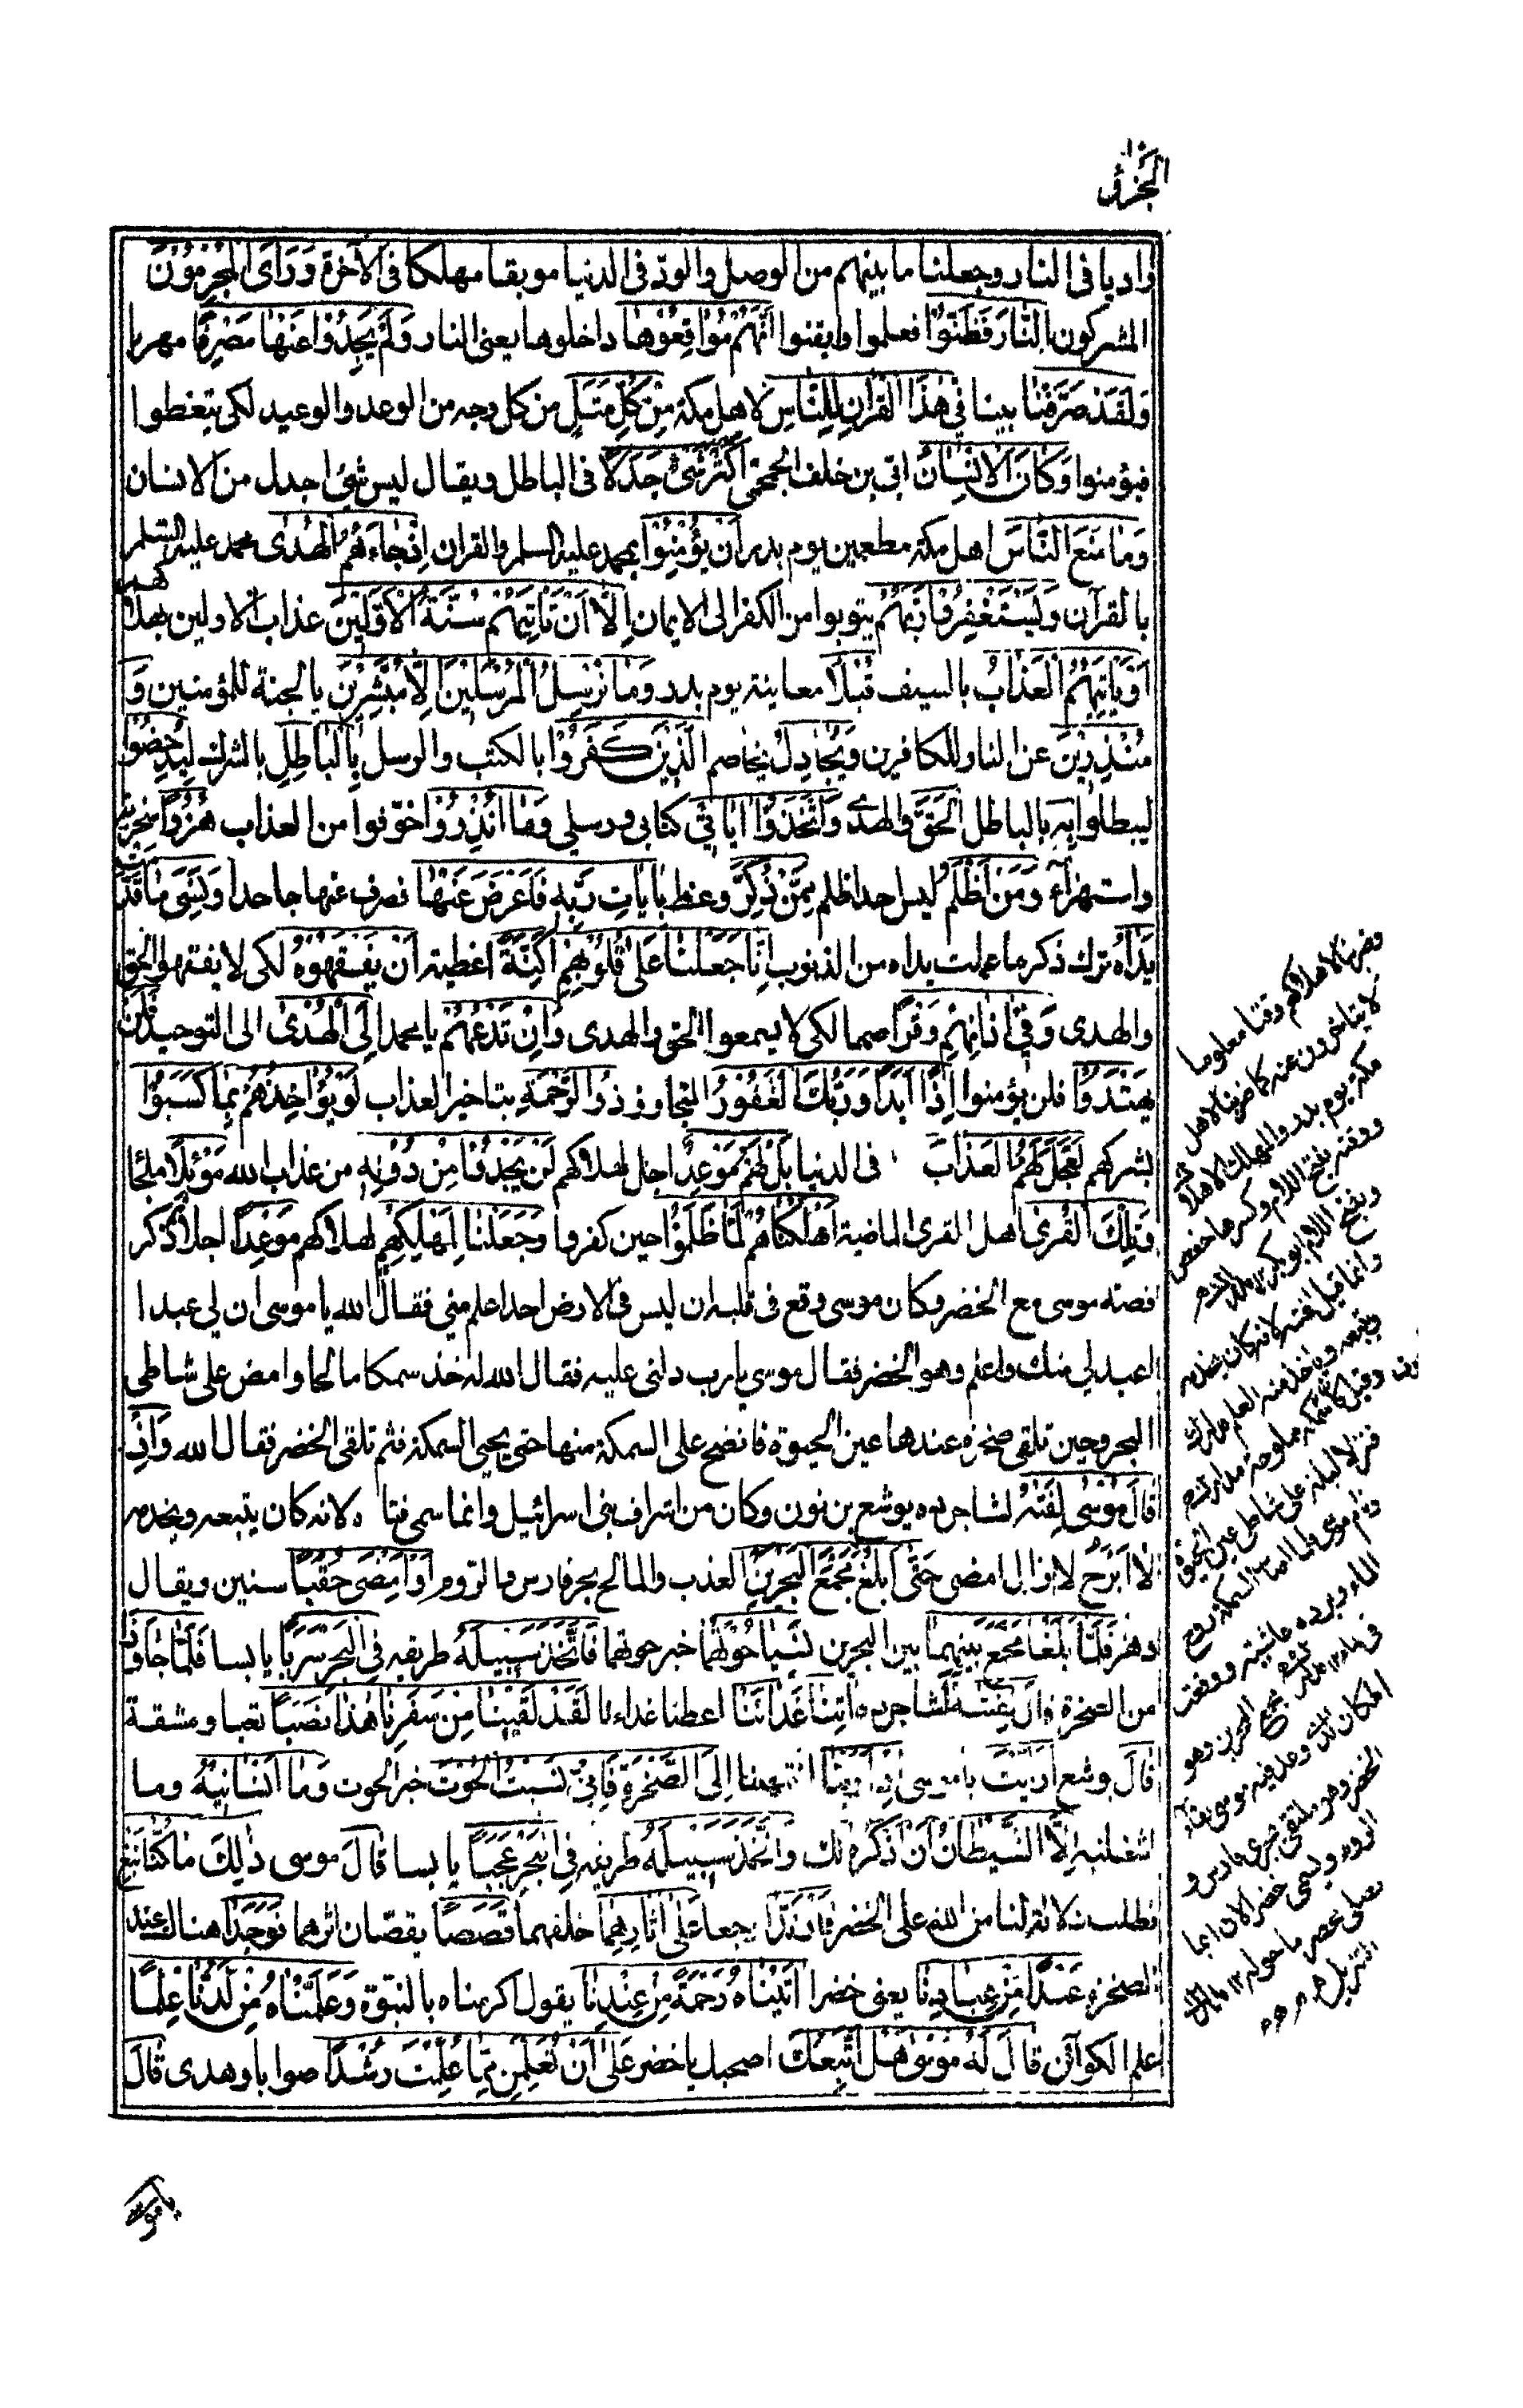 واديا فى النار وجعلنا ما بينهم من الوصل والود فى الدنيا موبقا مهلكا فى الآخرة وَرَأَى الْمُجْرِمُونَ
المشركون النَّارَ فَظَنُّوا فعلموا وايقنوا أَنَّهُمْ مُوَاقِعُوهَا داخلوها يعنى النار وَلَمْ يَجِدُوا عَنْهَا مَصْرِفًا مهربا
وَلَقَدْ صَرَّفْنَا بينا فِي هٰذَا الْقُرْآنِ لِلنَّاسِ لاهل مكة مِنْ كُلِّ مَثَلٍ من كل وجه من الوعد والوعيد لكى يتعظوا
فيؤمنوا وَكَانَ الْإِنْسَانُ ابى بن خلف الجمحى أَكْثَرَ شَيْءٍ جَدَلًا فى الباطل ويقال ليس شئ اجدل من الانسان
وَمَا مَنَعَ النَّاسَ اهل مكة مطعمين يوم بدر أَنْ يُؤْمِنُوا بمحمد عليه السلم والقران إِذْ جَاءَهُمُ الْهُدَى محمد عليه السلم
بالقرآن وَيَسْتَغْفِرُوا رَبَّهُمْ يتوبوا من الكفر الى الايمان إِلَّا أَنْ تَأْتِيَهُمْ سُنَّةُ الْأَوَّلِينَ عذاب الاولين بهلاكهم
أَوْ يَأْتِيَهُمُ الْعَذَابُ بالسيف قُبُلًا معاينة يوم بدر وَمَا نُرْسِلُ الْمُرْسَلِينَ إِلَّا مُبَشِّرِينَ بالجنة للمؤمنين وَ
مُنْذِرِينَ عن النار للكافرين وَيُجَادِلُ يخاصم الَّذِينَ كَفَرُوا بالكتب والرسل بِالْبَاطِلِ بالشرك لِيُدْحِضُوا
ليبطلوا بِهِ بالباطل الْحَقَّ والهدى وَاتَّخَذُوا آيَاتِي كتابى ورسلى وَمَا أُنْذِرُوا خوفوا من العذاب هُزُوًا سخرية
واستهزاء وَمَنْ أَظْلَمُ ليس احد اظلم مِمَّنْ ذُكِّرَ وعظ بِآيَاتِ رَبِّهِ فَأَعْرَضَ عَنْهَا فصرف عنها جاحدا وَنَسِيَ مَا قَدَّمَتْ
يَدَاهُ ترك ذكر ما عملت يداه من الذنوب إِنَّا جَعَلْنَا عَلَى قُلُوبِهِمْ أَكِنَّةً اغطية أَنْ يَفْقَهُوهُ لكى لا يفقهوا الحق
والهدى وَفِي آذَانِهِمْ وَقْرًا صمما لكى لا يسمعوا الحق والهدى وَإِنْ تَدْعُهُمْ يا محمد إِلَى الْهُدَى الى التوحيد فَلَنْ
يَهْتَدُوا فلن يؤمنوا إِذًا أَبَدًا وَرَبُّكَ الْغَفُورُ المتجاوز ذُو الرَّحْمَةِ بتاخير العذاب لَوْ يُؤَاخِذُهُمْ بِمَا كَسَبُوا
بشركهم لَعَجَّلَ لَهُمُ الْعَذَابَ فى الدنيا بَلْ لَهُمْ مَوْعِدٌ اجل لهلاكهم لَنْ يَجِدُوا مِنْ دُونِهِ من عذاب الله مَوْئِلًا ملجأ
وَتِلْكَ الْقُرَى اهل القرى الماضية أَهْلَكْنَاهُمْ لَمَّا ظَلَمُوا حين كفروا وَجَعَلْنَا لِمَهْلِكِهِمْ لهلاكهم مَوْعِدًا اجلا ذكر
قصة موسى مع الخضر وكان موسى وقع فى قلبه ان ليس فى الارض احد اعلم منى فقال الله يا موسى ان لى عبدا
اعبد لى منك واعلم وهو الخضر فقال موسى يارب دلنى عليه فقال الله له خذ سمكا مالحا وامض على شاطى
البحر وحين تلقى صخرة عندها عين الحيوة فانضح على السمكة منها حتى يحيى السمكة فثم تلقى الخضر فقال الله وَإِذْ
قَالَ مُوسَى لِفَتٰهُ لشاجرده يوشع بن نون وكان من اشراف بنى اسرائيل وانما سمى فتاه لانه كان يتبعه ويخدمه
لَا أَبْرَحُ لا ازال امضى حَتَّى أَبْلُغَ مَجْمَعَ الْبَحْرَيْنِ العذب والمالح بحر فارس والروم أَوْ أَمْضِيَ حُقُبًا سنين ويقال
دهر فَلَمَّا بَلَغَا مَجْمَعَ بَيْنِهِمَا بين البحرين نَسِيَا حُوتَهُمَا خبر حوتهما فَاتَّخَذَ سَبِيلَهُ طريقه فِي الْبَحْرِ سَرَبًا يابسا فَلَمَّا جَاوَزَا
من الصخرة قَالَ لِفَتٰهُ لشاجرده آتِنَا غَدَاءَنَا اعطنا غداءنا لَقَدْ لَقِينَا مِنْ سَفَرِنَا هٰذَا نَصَبًا تعبا ومشقة
قَالَ يوشع أَرَأَيْتَ يا موسى إِذْ أَوَيْنَا انتهينا إِلَى الصَّخْرَةِ فَإِنِّي نَسِيتُ الْحُوتَ خبر الحوت وَمَا أَنْسَانِيهُ وما
اشغلنيه إِلَّا الشَّيْطَانُ أَنْ أَذْكُرَهُ لك وَاتَّخَذَ سَبِيلَهُ طريقه فِي الْبَحْرِ عَجَبًا يابسا قَالَ موسى ذٰلِكَ مَا كُنَّا نَبْغِ
نطلب دلالة لنا من الله على الخضر فَارْتَدَّا رجعا عَلَى آثَارِهِمَا خلفهما قَصَصًا يقصان اثرهما فَوَجَدَا هنالك عند
الصخرة عَبْدًا مِنْ عِبَادِنَا يعنى خضرا آتَيْنَاهُ رَحْمَةً مِنْ عِنْدِنَا يقول اكرمناه بالنبوة وَعَلَّمْنَاهُ مِنْ لَدُنَّا عِلْمًا
علم الكوائن قَالَ لَهُ مُوسَى هَلْ أَتَّبِعُكَ اصحبك يا خضر عَلَى أَنْ تُعَلِّمَنِ مِمَّا عُلِّمْتَ رُشْدًا صوابا وهدى قَالَ
وضربنا لاهلاكهم وقتا معلوما
لا يتاخرون عنه كما ضربنا لاهل
مكة يوم بدر والمهلك الاهلاك
ووقته بفتح اللام وكسرها حفص
وبفتح اللام ابو بكر
وانما قيل لفتيه لانه كان يخدمه
ويتبعه وياخذ منه العلم
وقيل كان سمكة مملوحة
فنزلا ليلة على شاطى عين الحيوة
ونام موسى فلما اصاب السمكة روح
الماء وبرده عاشت ووقعت